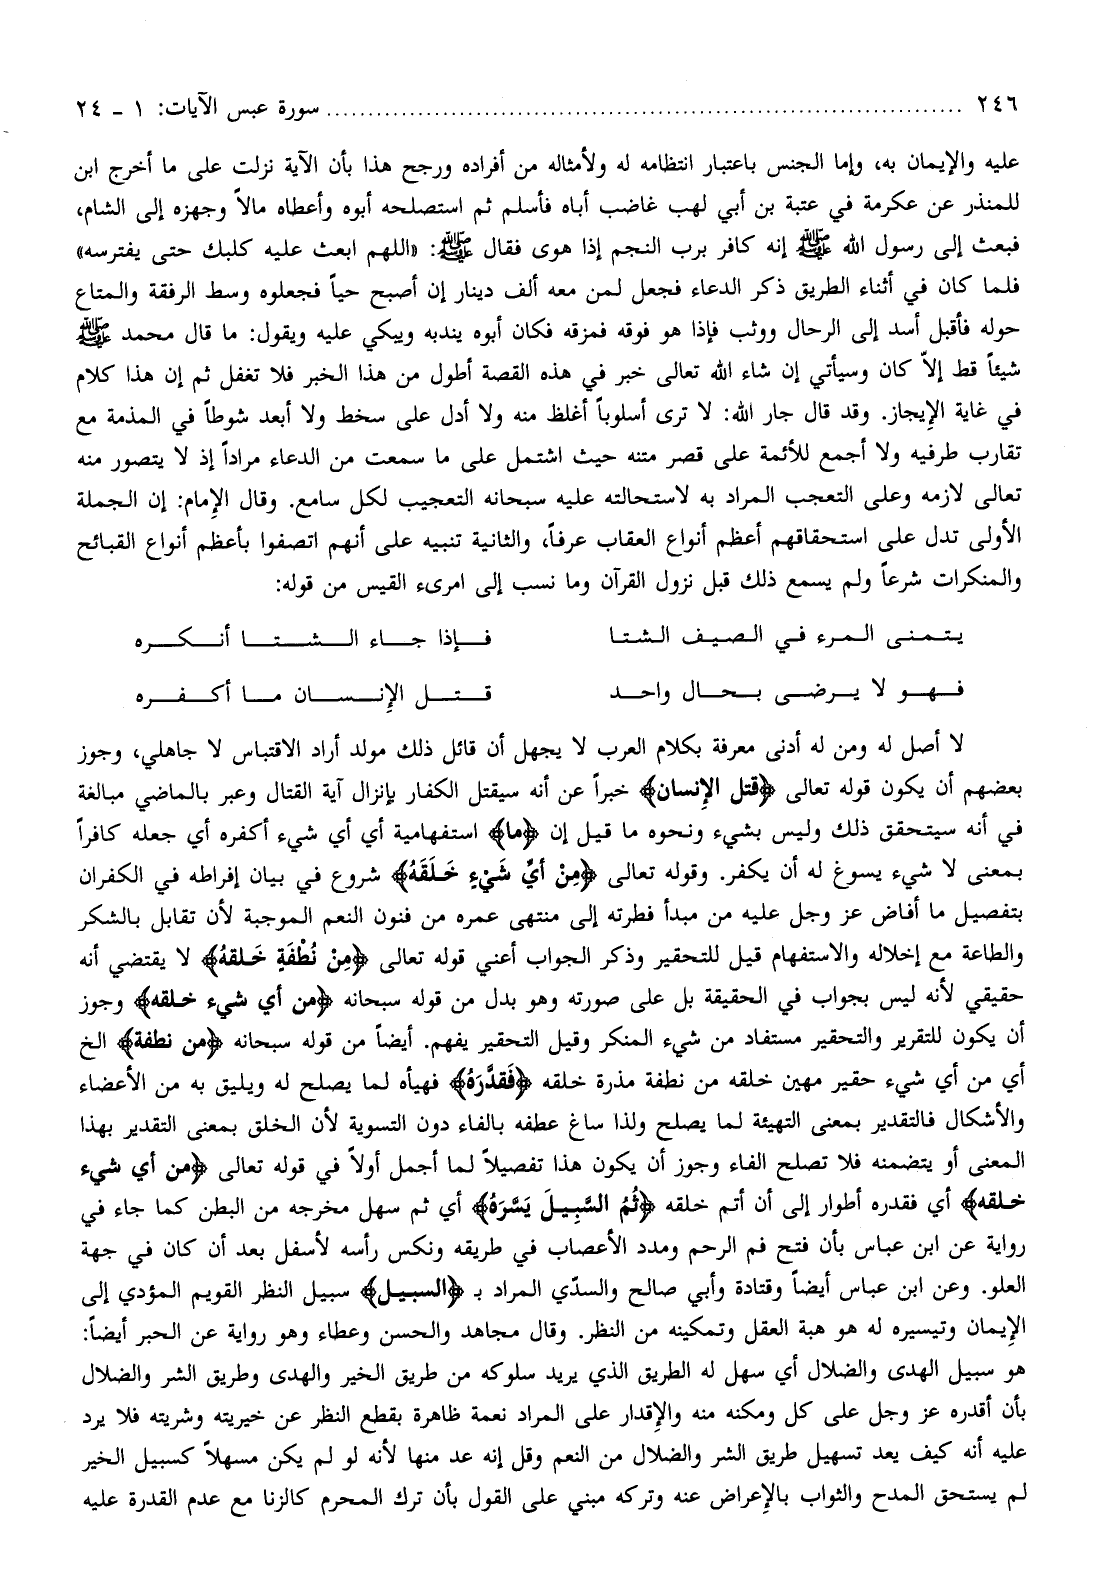 ٢٤٦ ........................................................................ سورة عبس الآيات: ١ ـ ٢٤
عليه والإيمان به، وإما الجنس باعتبار انتظامه له ولأمثاله من أفراده ورجح هذا بأن الآية نزلت على ما أخرج ابن
للمنذر عن عكرمة في عتبة بن أبي لهب غاضب أباه فأسلم ثم استصلحه أبوه وأعطاه مالاً وجهزه إلى الشام،
فبعث إلى رسول الله ﷺ إنه كافر برب النجم إذا هوى فقال ﷺ: «اللهم ابعث عليه كلبك حتى يفترسه»
فلما كان في أثناء الطريق ذكر الدعاء فجعل لمن معه ألف دينار إن أصبح حياً فجعلوه وسط الرفقة والمتاع
حوله فأقبل أسد إلى الرحال ووثب فإذا هو فوقه فمزقه فكان أبوه يندبه ويبكي عليه ويقول: ما قال محمد ﷺ
شيئاً قط إلاّ كان وسيأتي إن شاء الله تعالى خبر في هذه القصة أطول من هذا الخبر فلا تغفل ثم إن هذا كلام
في غاية الإيجاز. وقد قال جار الله: لا ترى أسلوباً أغلظ منه ولا أدل على سخط ولا أبعد شوطاً في المذمة مع
تقارب طرفيه ولا أجمع للأئمة على قصر متنه حيث اشتمل على ما سمعت من الدعاء مراداً إذ لا يتصور منه
تعالى لازمه وعلى التعجب المراد به لاستحالته عليه سبحانه التعجيب لكل سامع. وقال الإمام: إن الجملة
الأولى تدل على استحقاقهم أعظم أنواع العقاب عرفاً، والثانية تنبيه على أنهم اتصفوا بأعظم أنواع القبائح
والمنكرات شرعاً ولم يسمع ذلك قبل نزول القرآن وما نسب إلى امرىء القيس من قوله:
يتمنى المرء في الصيف الشتا فإذا جاء الشتا أنكره
فهو لا يرضى بحال واحد قتل الإنسان ما أكفره
لا أصل له ومن له أدنى معرفة بكلام العرب لا يجهل أن قائل ذلك مولد أراد الاقتباس لا جاهلي، وجوز
بعضهم أن يكون قوله تعالى ﴿قتل الإنسان﴾ خبراً عن أنه سيقتل الكفار بإنزال آية القتال وعبر بالماضي مبالغة
في أنه سيتحقق ذلك وليس بشيء ونحوه ما قيل إن ﴿ما﴾ استفهامية أي أي شيء أكفره أي جعله كافراً
بمعنى لا شيء يسوغ له أن يكفر. وقوله تعالى ﴿مِنْ أيِّ شَيْءٍ خَلَقَهُ﴾ شروع في بيان إفراطه في الكفران
بتفصيل ما أفاض عز وجل عليه من مبدأ فطرته إلى منتهى عمره من فنون النعم الموجبة لأن تقابل بالشكر
والطاعة مع إخلاله والاستفهام قيل للتحقير وذكر الجواب أعني قوله تعالى ﴿مِنْ نُطْفَةٍ خَلقهُ﴾ لا يقتضي أنه
حقيقي لأنه ليس بجواب في الحقيقة بل على صورته وهو بدل من قوله سبحانه ﴿من أي شيء خلقه﴾ وجوز
أن يكون للتقرير والتحقير مستفاد من شيء المنكر وقيل التحقير يفهم. أيضاً من قوله سبحانه ﴿من نطفة﴾ الخ
أي من أي شيء حقير مهين خلقه من نطفة مذرة خلقه ﴿فَقدَّرَهُ﴾ فهيأه لما يصلح له ويليق به من الأعضاء
والأشكال فالتقدير بمعنى التهيئة لما يصلح ولذا ساغ عطفه بالفاء دون التسوية لأن الخلق بمعنى التقدير بهذا
المعنى أو يتضمنه فلا تصلح الفاء وجوز أن يكون هذا تفصيلاً لما أجمل أولاً في قوله تعالى ﴿من أي شيء
خلقه﴾ أي فقدره أطوار إلى أن أتم خلقه ﴿ثُمُ السَّبِيلَ يَسَّرَهُ﴾ أي ثم سهل مخرجه من البطن كما جاء في
رواية عن ابن عباس بأن فتح فم الرحم ومدد الأعصاب في طريقه ونكس رأسه لأسفل بعد أن كان في جهة
العلو. وعن ابن عباس أيضاً وقتادة وأبي صالح والسدّي المراد بـ ﴿السبيل﴾ سبيل النظر القويم المؤدي إلى
الإيمان وتيسيره له هو هبة العقل وتمكينه من النظر. وقال مجاهد والحسن وعطاء وهو رواية عن الحبر أيضاً:
هو سبيل الهدى والضلال أي سهل له الطريق الذي يريد سلوكه من طريق الخير والهدى وطريق الشر والضلال
بأن أقدره عز وجل على كل ومكنه منه والإقدار على المراد نعمة ظاهرة بقطع النظر عن خيريته وشريته فلا يرد
عليه أنه كيف يعد تسهيل طريق الشر والضلال من النعم وقل إنه عد منها لأنه لو لم يكن مسهلاً كسبيل الخير
لم يستحق المدح والثواب بالإعراض عنه وتركه مبني على القول بأن ترك المحرم كالزنا مع عدم القدرة عليه